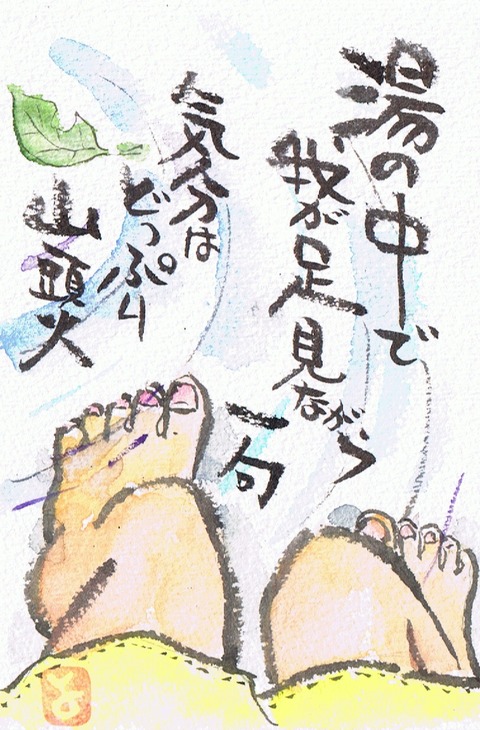 湯の中で
我が足見ながら
一句
気分は
どっぷり
山頭火
と